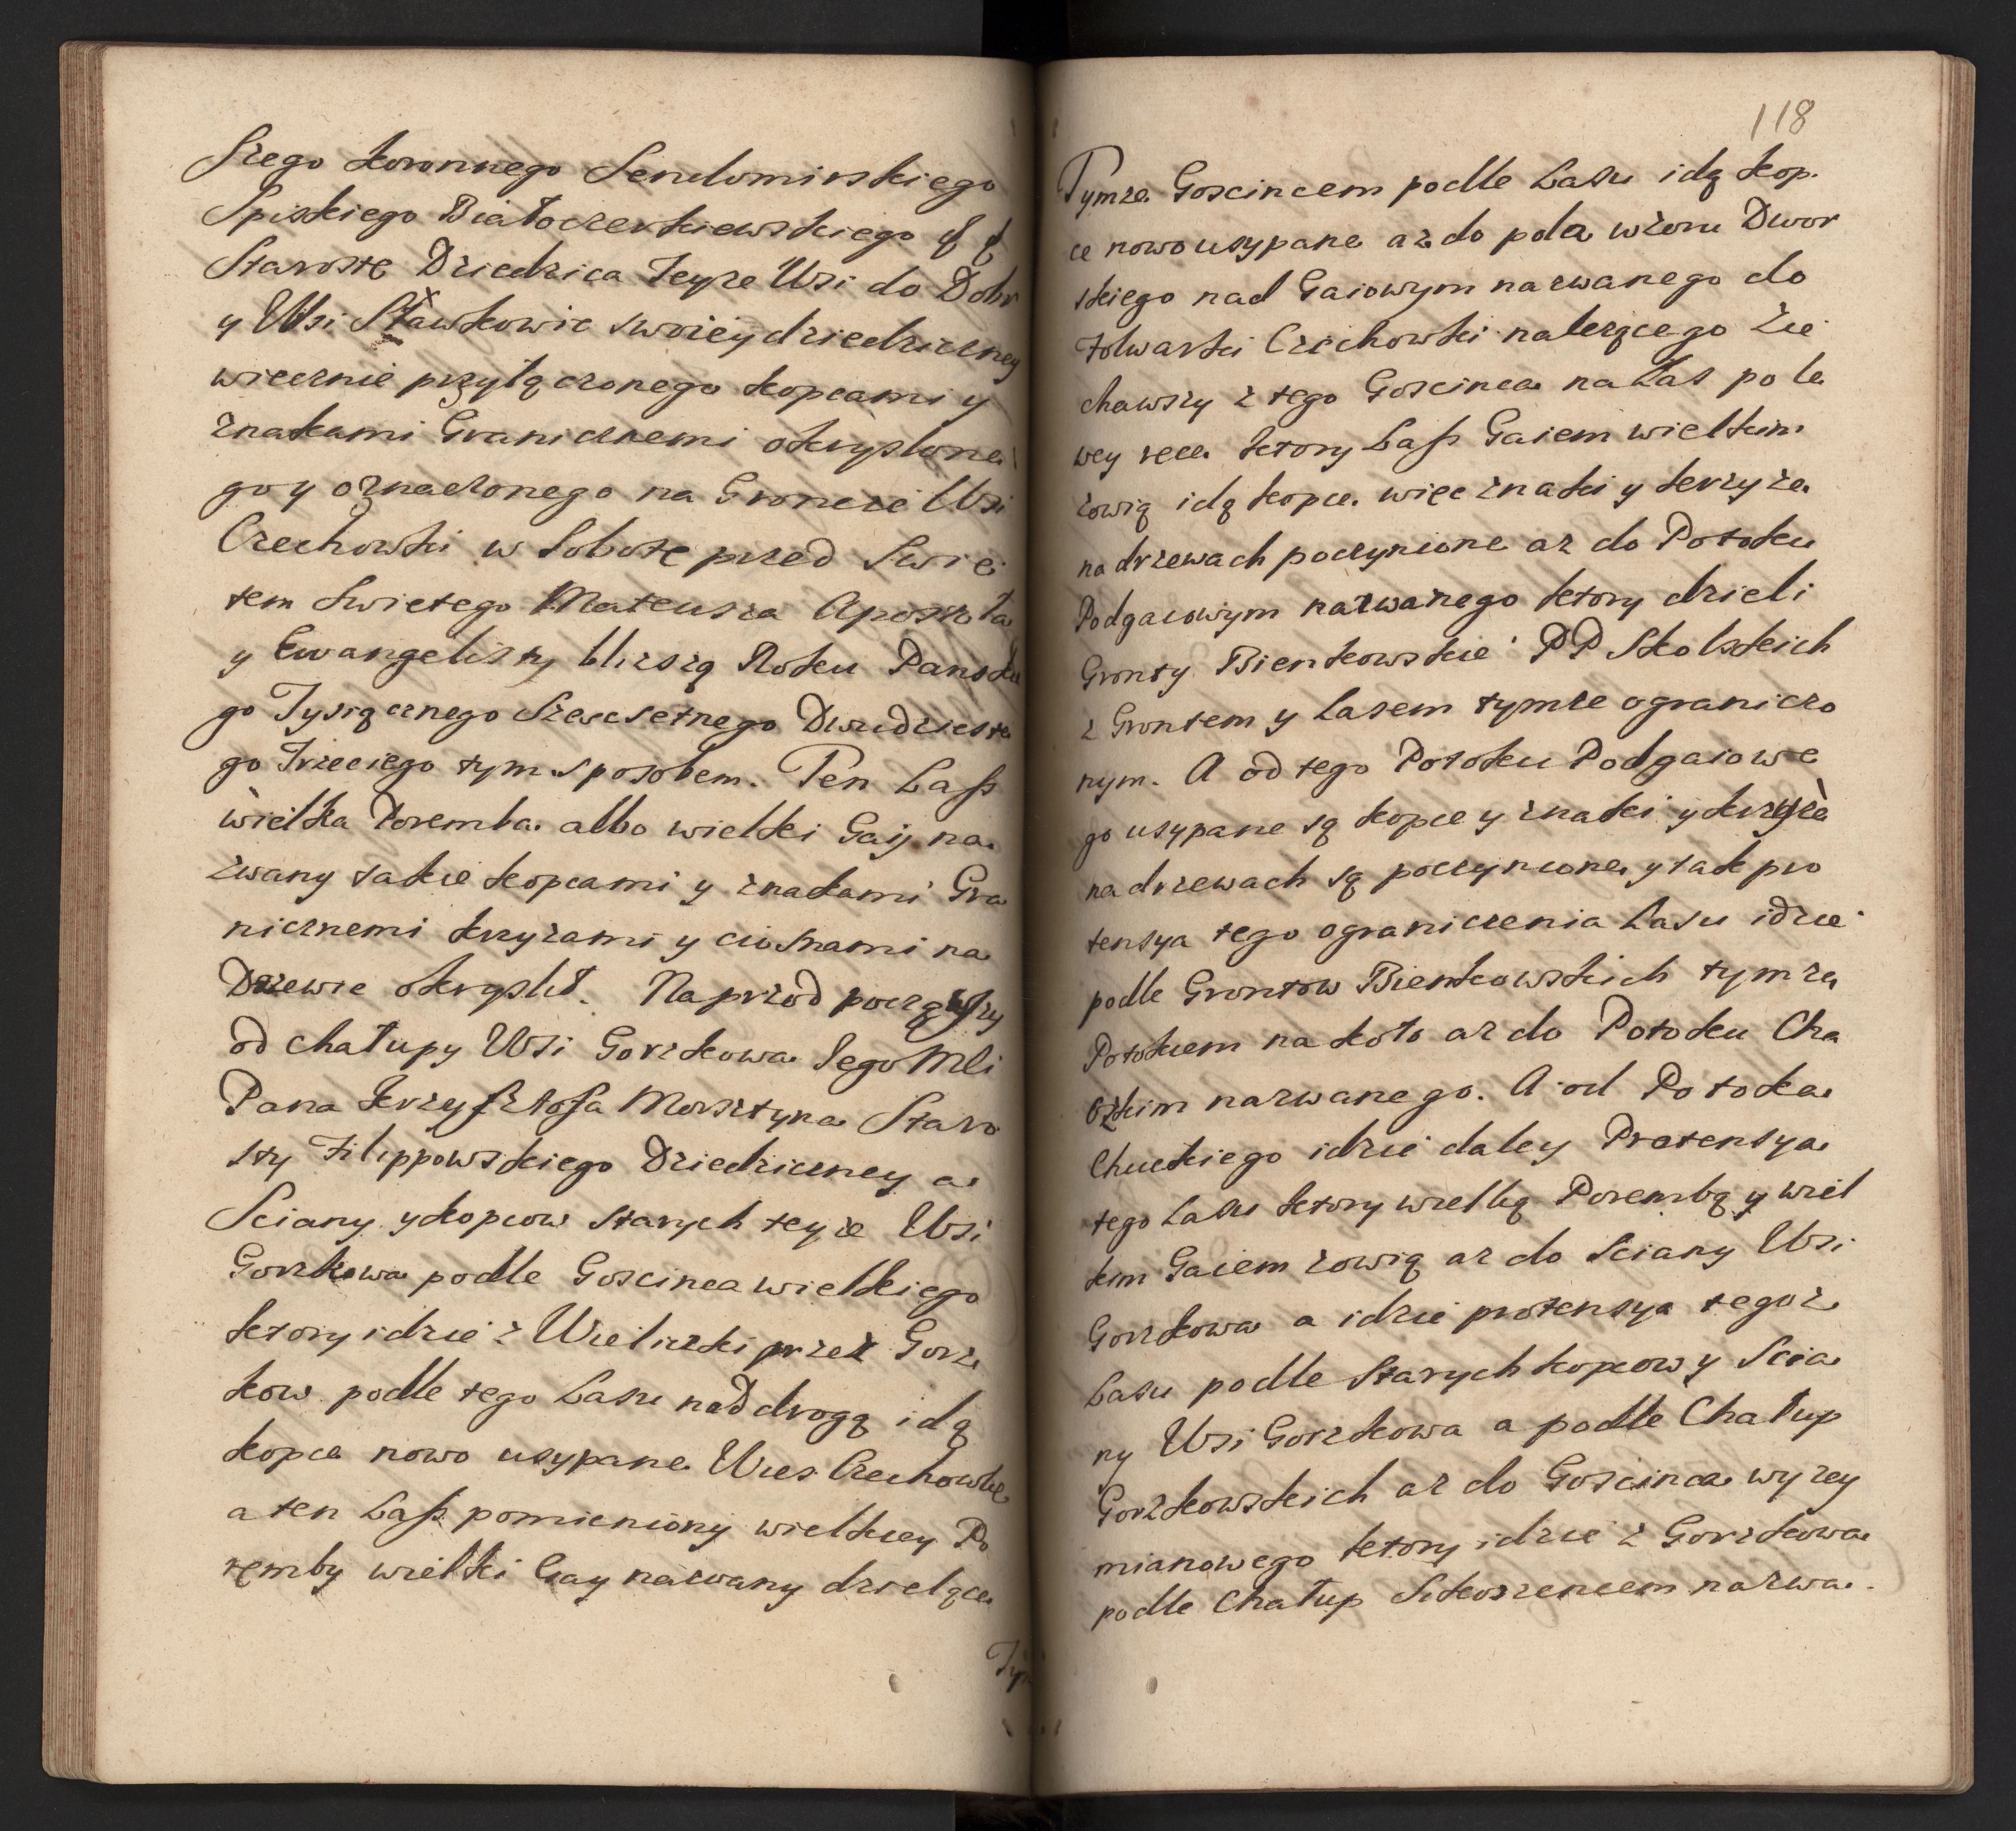 szego koronnego Sendomirskiego
Spiskiego Białocerkiewskiego & &
Starostę Dziedzica Teyże Wsi do Dobr
y Wsi Sławkowic swoiey dziedziczney
wiecznie przyłączonego kopcami y
znakami Granicznemi okryslone
go y oznaczonego na Groncie Wsi
Czechowki w Sobotę przed Swię
tem Swietego Mateusza Apostoła
y Ewangelisty bliższą Roku Pansku
go Tysiącznego Szescsetnego Dwudzieste
go Trzeciego tym sposobem. Ten Lass
wielka Poremba albo wielki Gaij na
zwany takie kopcami y znakami Gra
nicznemi krzyżami y ciosnami na
Drzewie okryslił. Naprzod począwszy
od chałupy Wsi Gorzkowa Iego Mci
Pana Krzysztofa Morsztyna Staro
sty Filippowskiego Dziedziczney a
Sciany y kopcow starych teyże Wsi
Gorzkowa podle Goscinca wielkiego
ktory idzie z Wieliczki przez Gorz
kow podle tego Lasu nad drogą idą
kopce nowo usypane Wies Czechowkę
a ten Lass pomieniony wielkiey Po
remby wielki Gay nazwany dzielące
Tym
118
Tymze Goscincem podle Lasu idą kop.
ce nowo usypane aż do pola wzoru Dwor
skiego nad Gaiowym nazwanego do
folwarki Czechowki należącego Zie
chawszy z tego Goscinca na Las po le
wey rece ktory Lass Gaiem wielkim
zowią idą kopce. więc znaki y krzyże
na drzewach poczynione aż do Potoku
Podgaiowym nazwanego ktory dzieli
Gronty Bienkowskie PP Skolskich
z Grontem y Lasem tymze ogranicżo
nym. A od tego Potoku Podgaiowe
go usypane są kopce y znaki y krzyże
na drzewach są poczynione y tak pro
tensya tego ograniczenia Lasu idzie
podle Grontow Bienkowskich tymże
Potokiem na koło aż do Potoku Chu
ckim nazwanego. A od Potoka
Chuckiego idzie daley Protensya
tego Lasu ktory wielką Porembą y wiel
kim Gaiem zowią aż do Sciany Wsi
Gorzkowa a idzie protensya tegoż
Lasu podle Starych kopcow y Scia
ny Wsi Gorzkowa a podle Chałup
Gorzkowskich aż do Goscinca wyżey
mianowego ktory idzie z Gorzkowa
podle Chałup Sikorzencem nazwa.